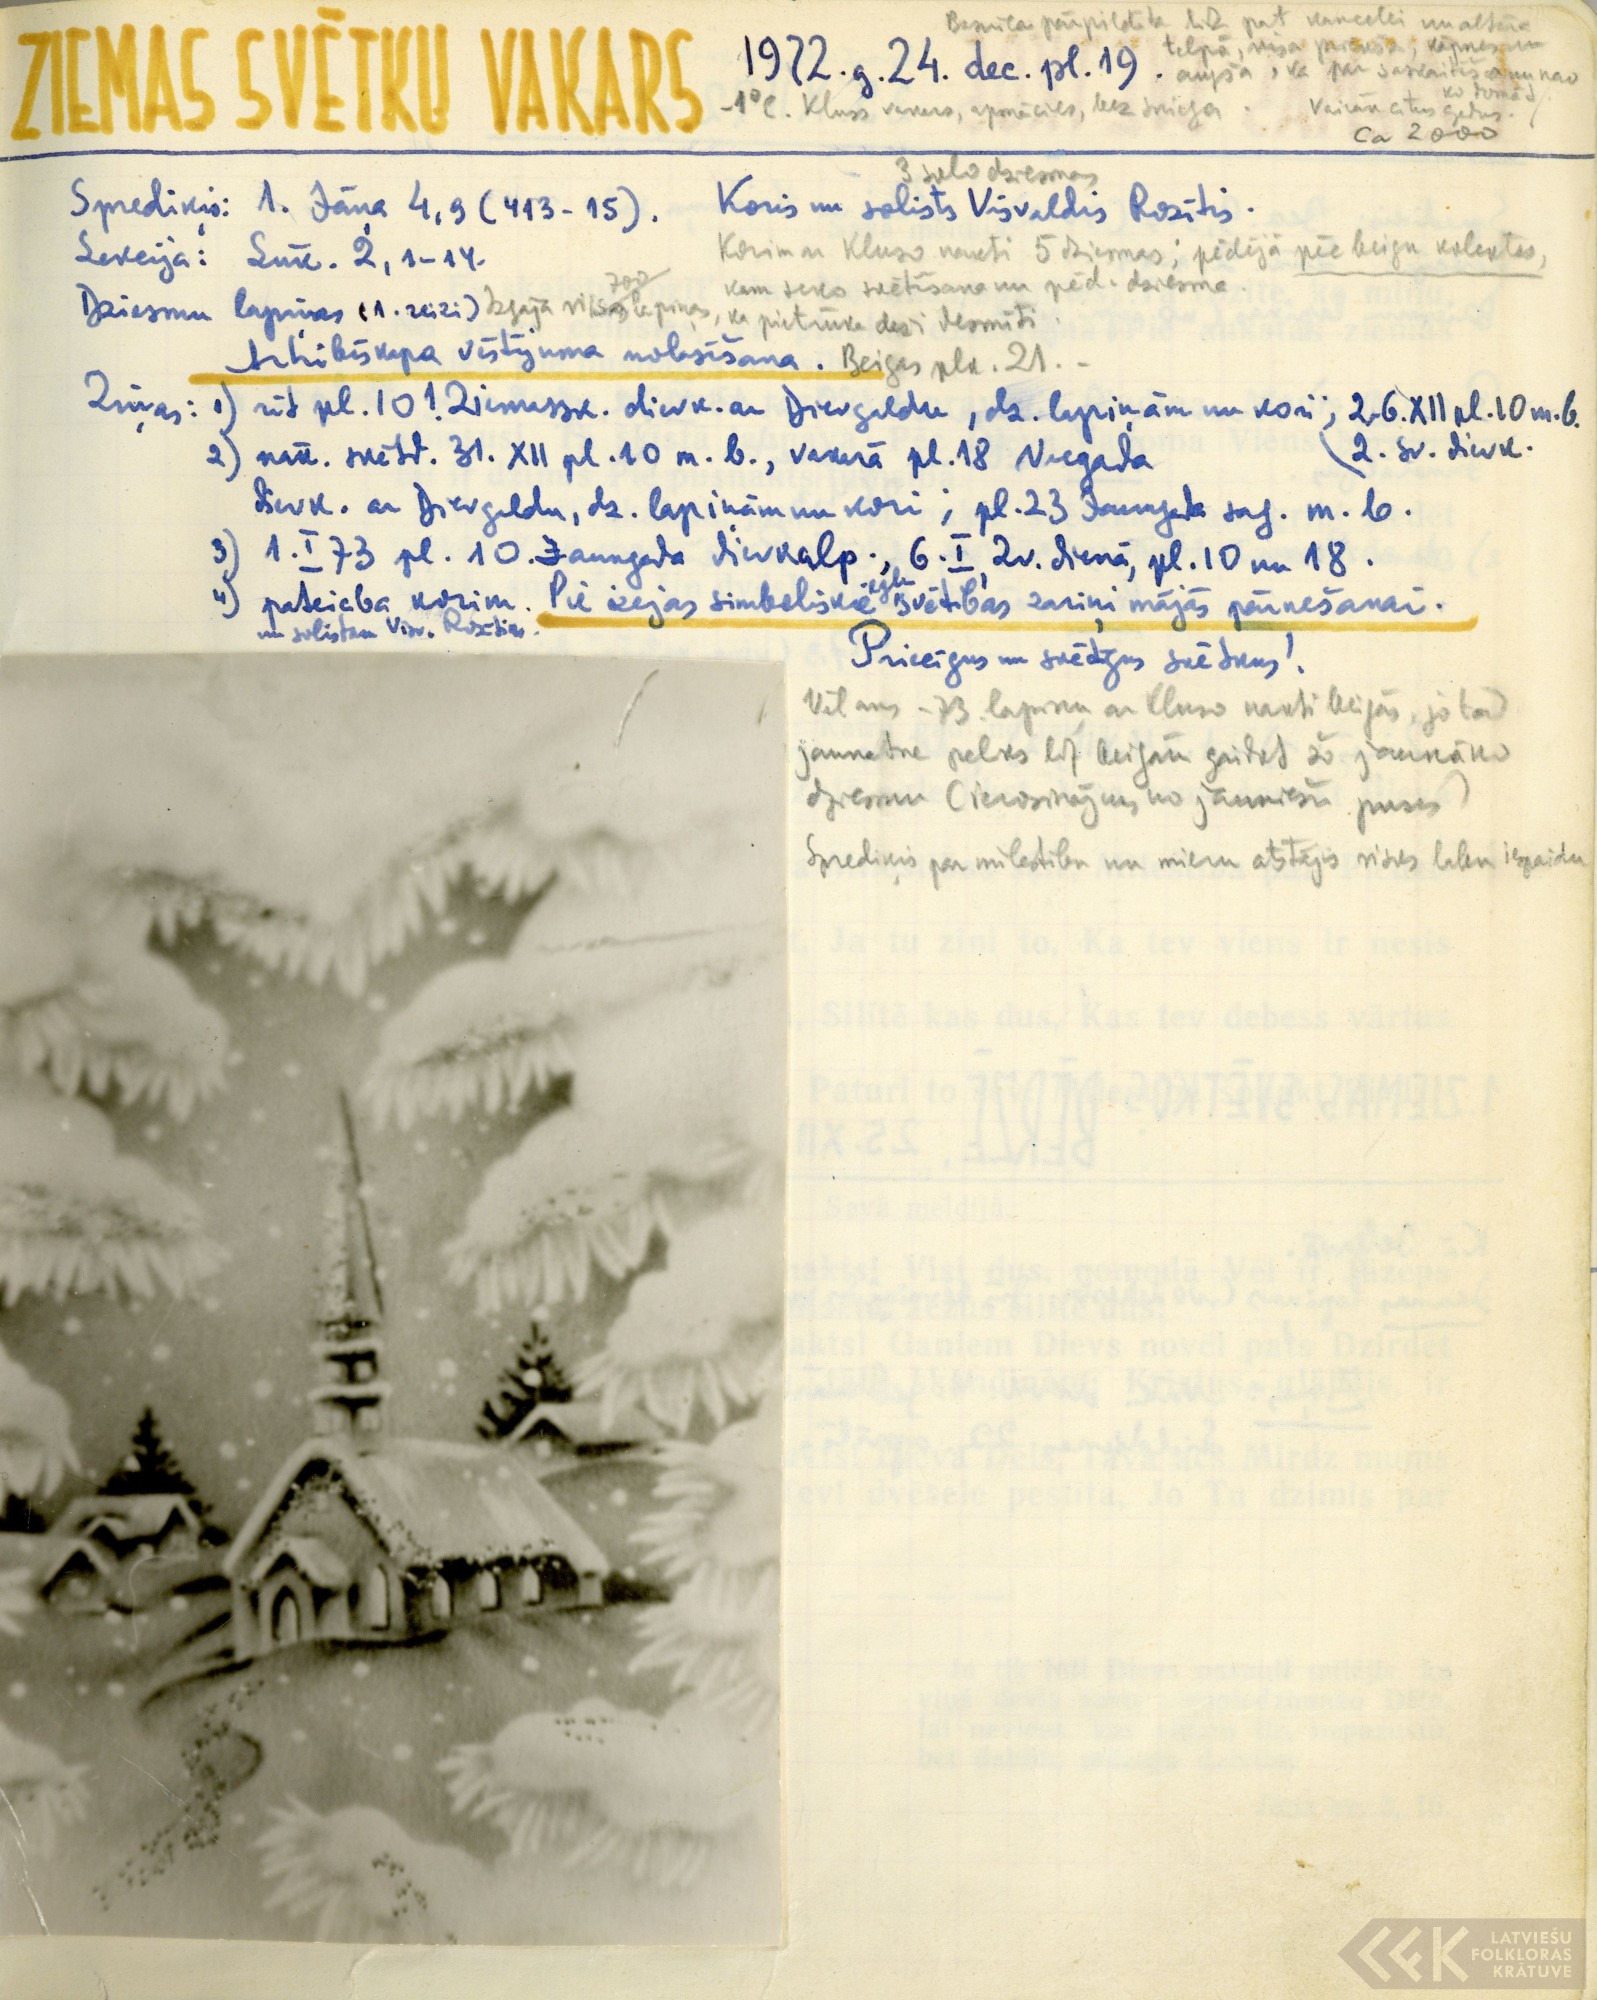 ZIEMAS SVĒTKU VAKARS
1972. g. 24. dec. pl. 19.
Baznīca pārpildīta līdz pat kancelei un altāra
telpā, visa priekša, kāpnes un
augša, ka par saskaitīšanu nav
ko domāt.
Vairāk citus gadus.
Ca 2000
-1°C. Kluss vakars, apmācies, bez sniega.
Sprediķis: 1. Jāņa 4,9 (413-15).
3 solo dziesmas
Koris un solists Visvaldis Rozītis.
Lekcija: Lūk. 2, 1-14.
Korim ar Kluso nakti 5 dziesmas; pēdējā pēc beigu kolektes,
kam seko svētīšana un pēd. dziesma.
Dziesmu lapiņas (1. reizi) Izgāja visas 700 lapiņas, ka pietrūka daži desmiti.
Arhibīskapa vēstījuma nolasīšana. Beigas plk. 21.-
Ziņas: 1) rīt pl. 10! Ziemassv. dievk. ar Dievgaldu, dz. lapiņām un kori; 26. XII pl. 10 m. b.
(2. sv. dievk.
2) nāk. svētd. 31. XII pl. 10 m. b., vakarā pl. 18 Vecgada
dievk. ar Dievgaldu, dz. lapiņām un kori; pl. 23 Jaungada sag. m. b.
3) 1. I 73 pl. 10. Jaungada dievkalp., 6. I, Zv. dienā, pl. 10 un 18.
4) pateicība korim. Pie izejas simboliskie egļu svētības zariņi mājās pārnešanai.
un solistam Visv. Rozītim.
Priecīgus un svētīgus svētkus!
-73. lapiņu ar Kluso nakti beigās, jo tad
jaunatne paliks līdz beigām gaidot šo jaukāko
dziesmu (ierosinājums no jauniešu puses)
Sprediķis par mīlestību un mieru atstājis visos labu iespaidu
LATVIEŠU
FOLKLORAS
KRĀTUVE